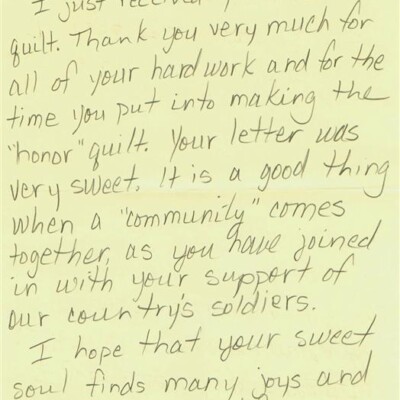 I just received
quilt. Thank you very much for
all of your hard work and for the
time you put into making the
"honor" quilt. Your letter was
very sweet. It is a good thing
when a "community" comes
together, as you have joined
in with your support of
our country's soldiers.
I hope that your sweet
soul finds many joys and